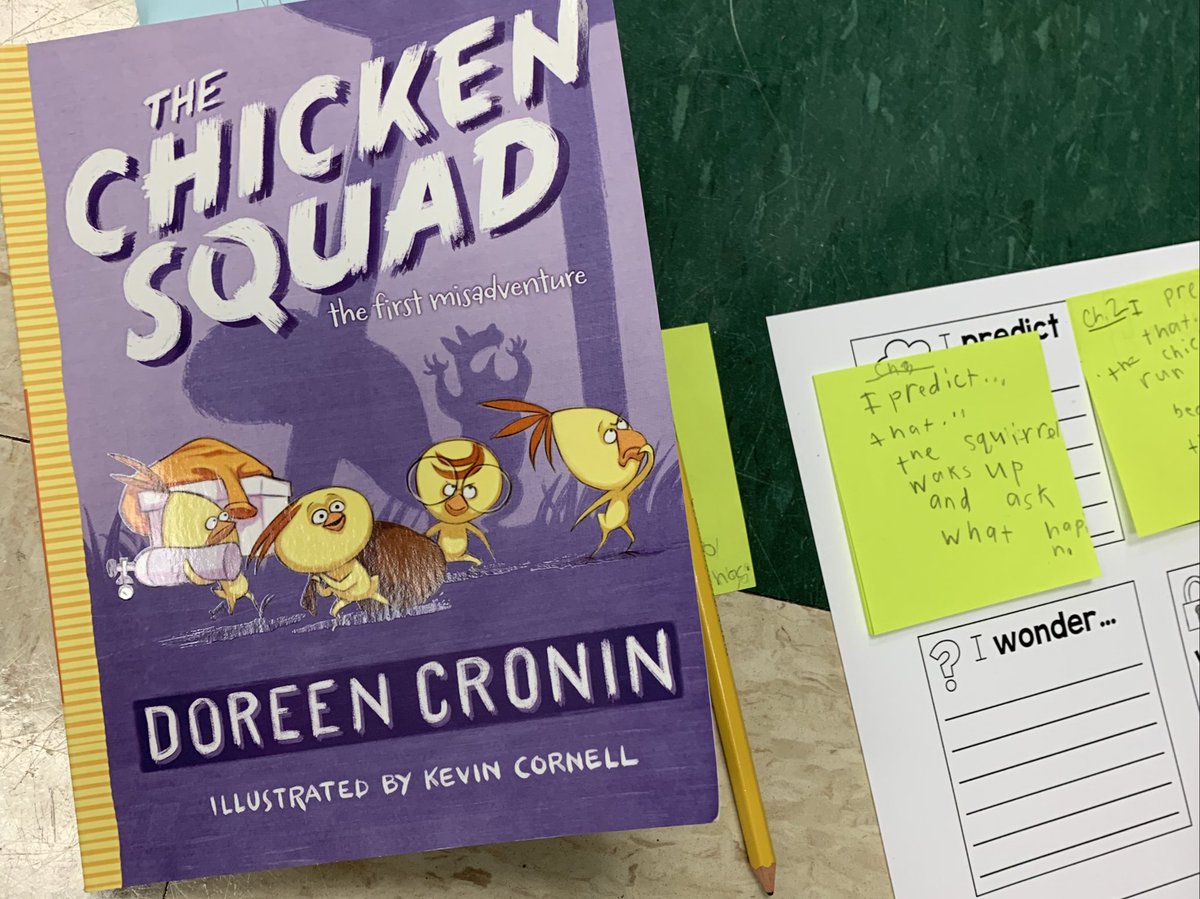 THE
CHICKEN
SQUAD
the first misadventure
DOREEN CRONIN
ILLUSTRATED BY KEVIN CORNELL
I predict
I predict...
that"
the squirrel
waks up
and ask
what hap
n.
Ch.2 I pre
that
the chic
run
bec
t
? I wonder...